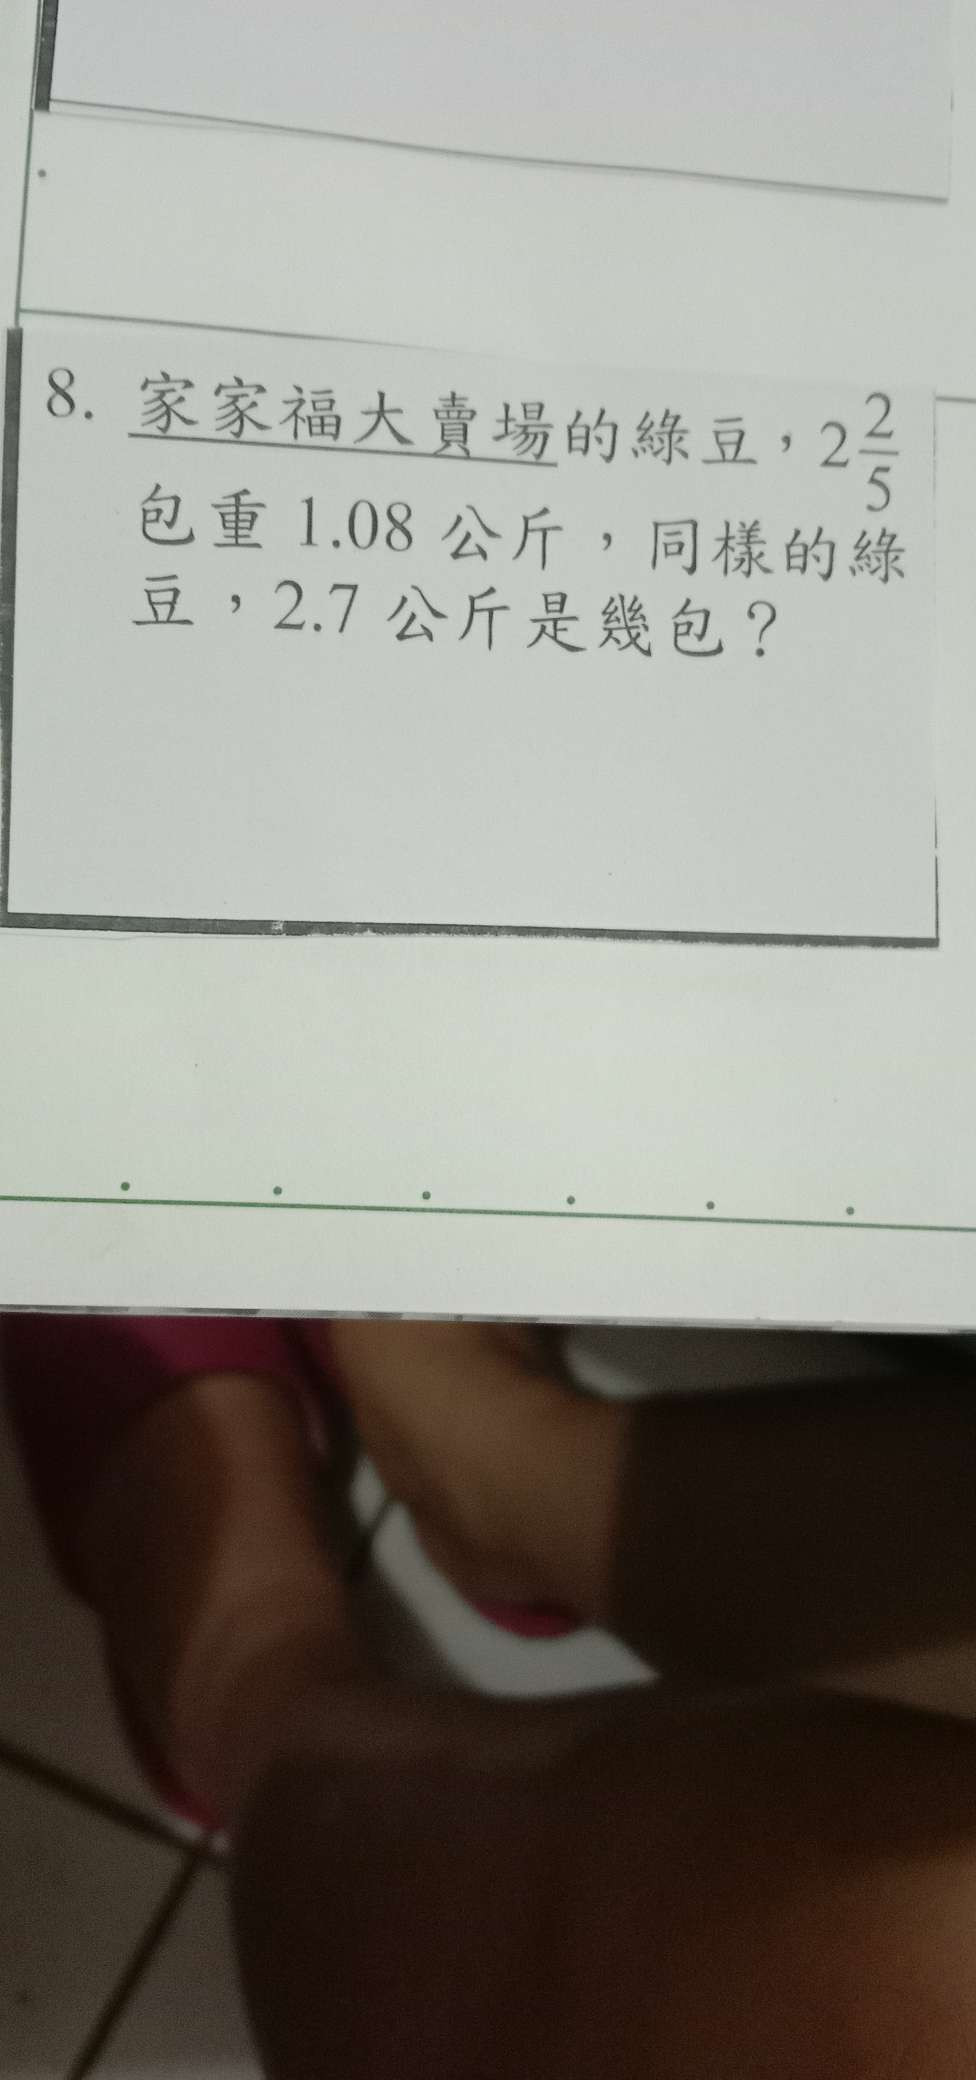 8. 家家福大賣場的綠豆，2 2/5
包重 1.08 公斤，同樣的綠
豆，2.7 公斤是幾包？